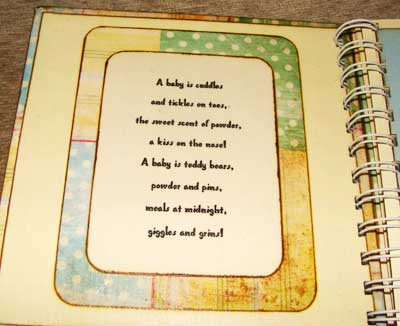 A baby is cuddles
and tickles on toes,
the sweet scent of powder,
a kiss on the nose!
A baby is teddy bears,
powder and pins,
meals at midnight,
giggles and grins!